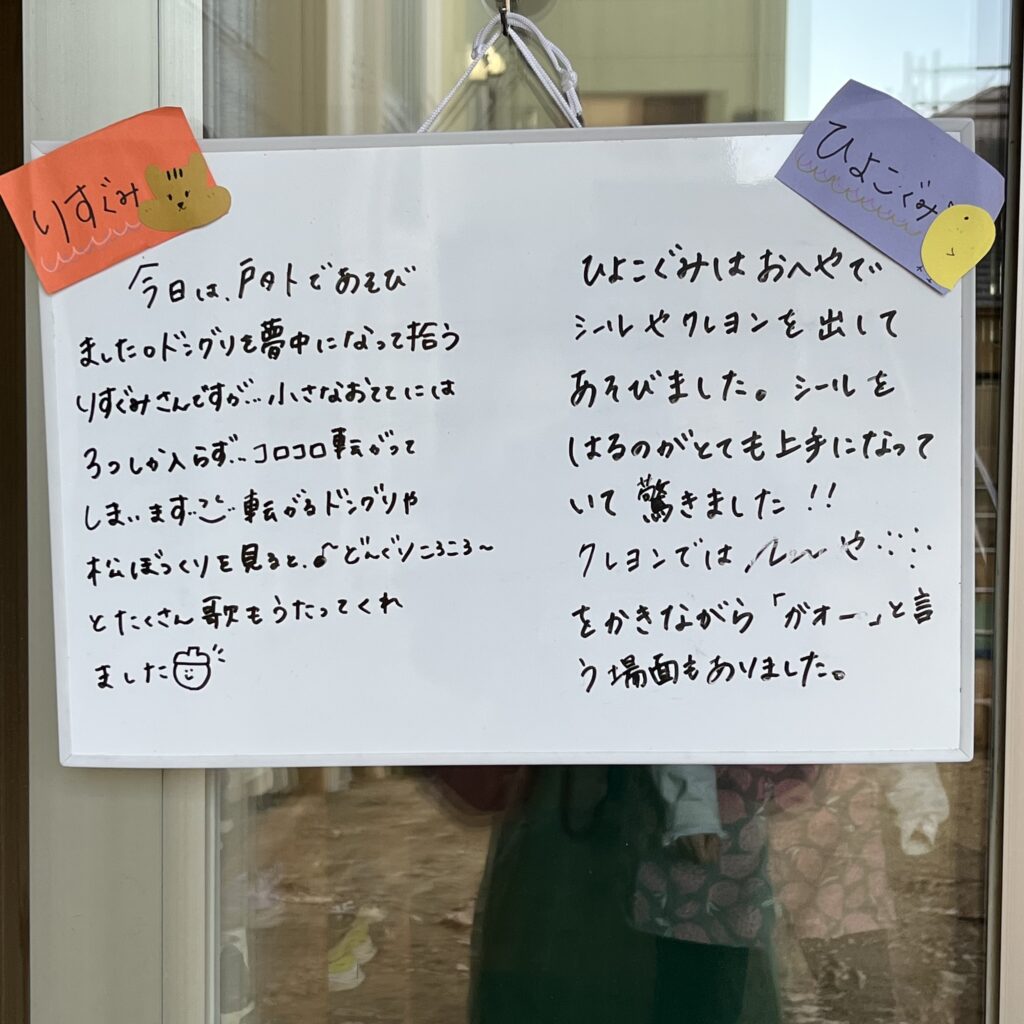 りすぐみ
今日は、戸外であそび
ました。ドングリを夢中になって拾う
りすぐみさんですが…小さなおててには
3つしか入らず…コロコロ転がって
しまいます…転がるドングリや
松ぼっくりを見ると、♪どんぐりころころ〜
とたくさん歌もうたってくれ
ました
ひよこぐみ
ひよこぐみはおへやで
シールやクレヨンを出して
あそびました。シールを
はるのがとても上手になって
いて驚きました!!
クレヨンでは 〜 や ∴∵
をかきながら「ガオー」と言
う場面もありました。